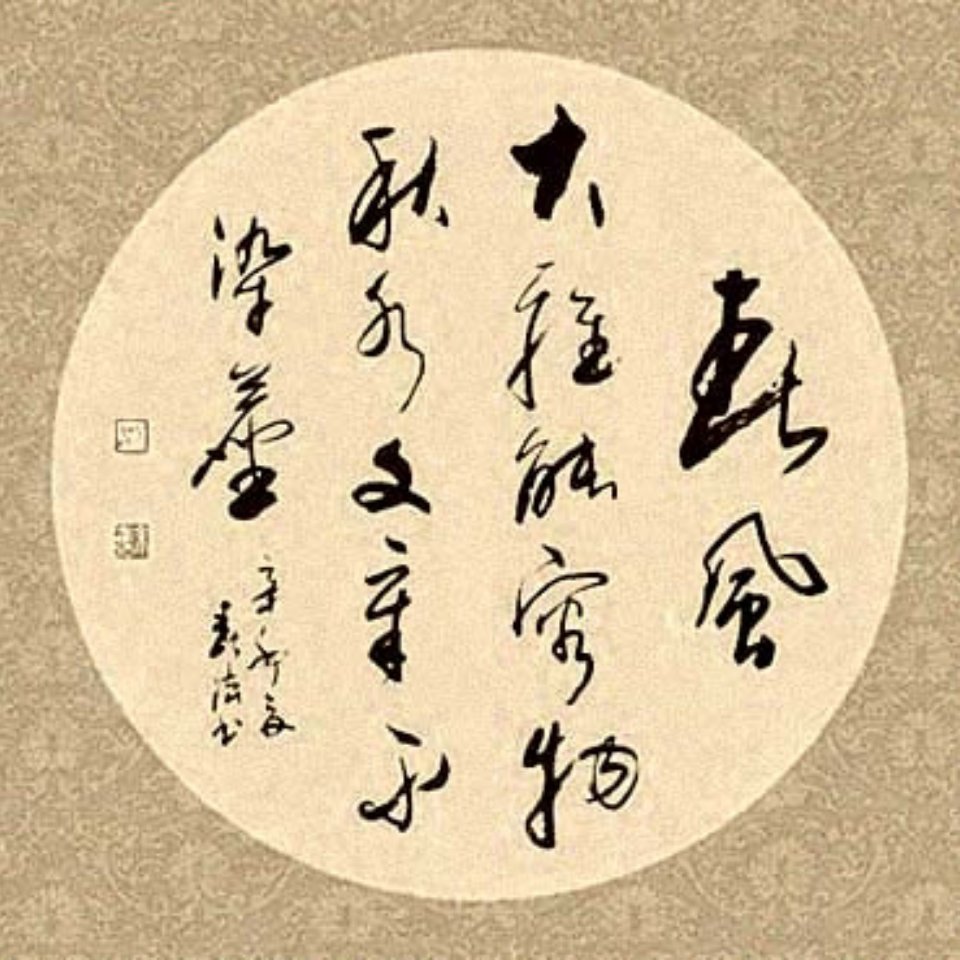 春風
大雅能容物
秋水文章不
染塵
辛卯夏
書